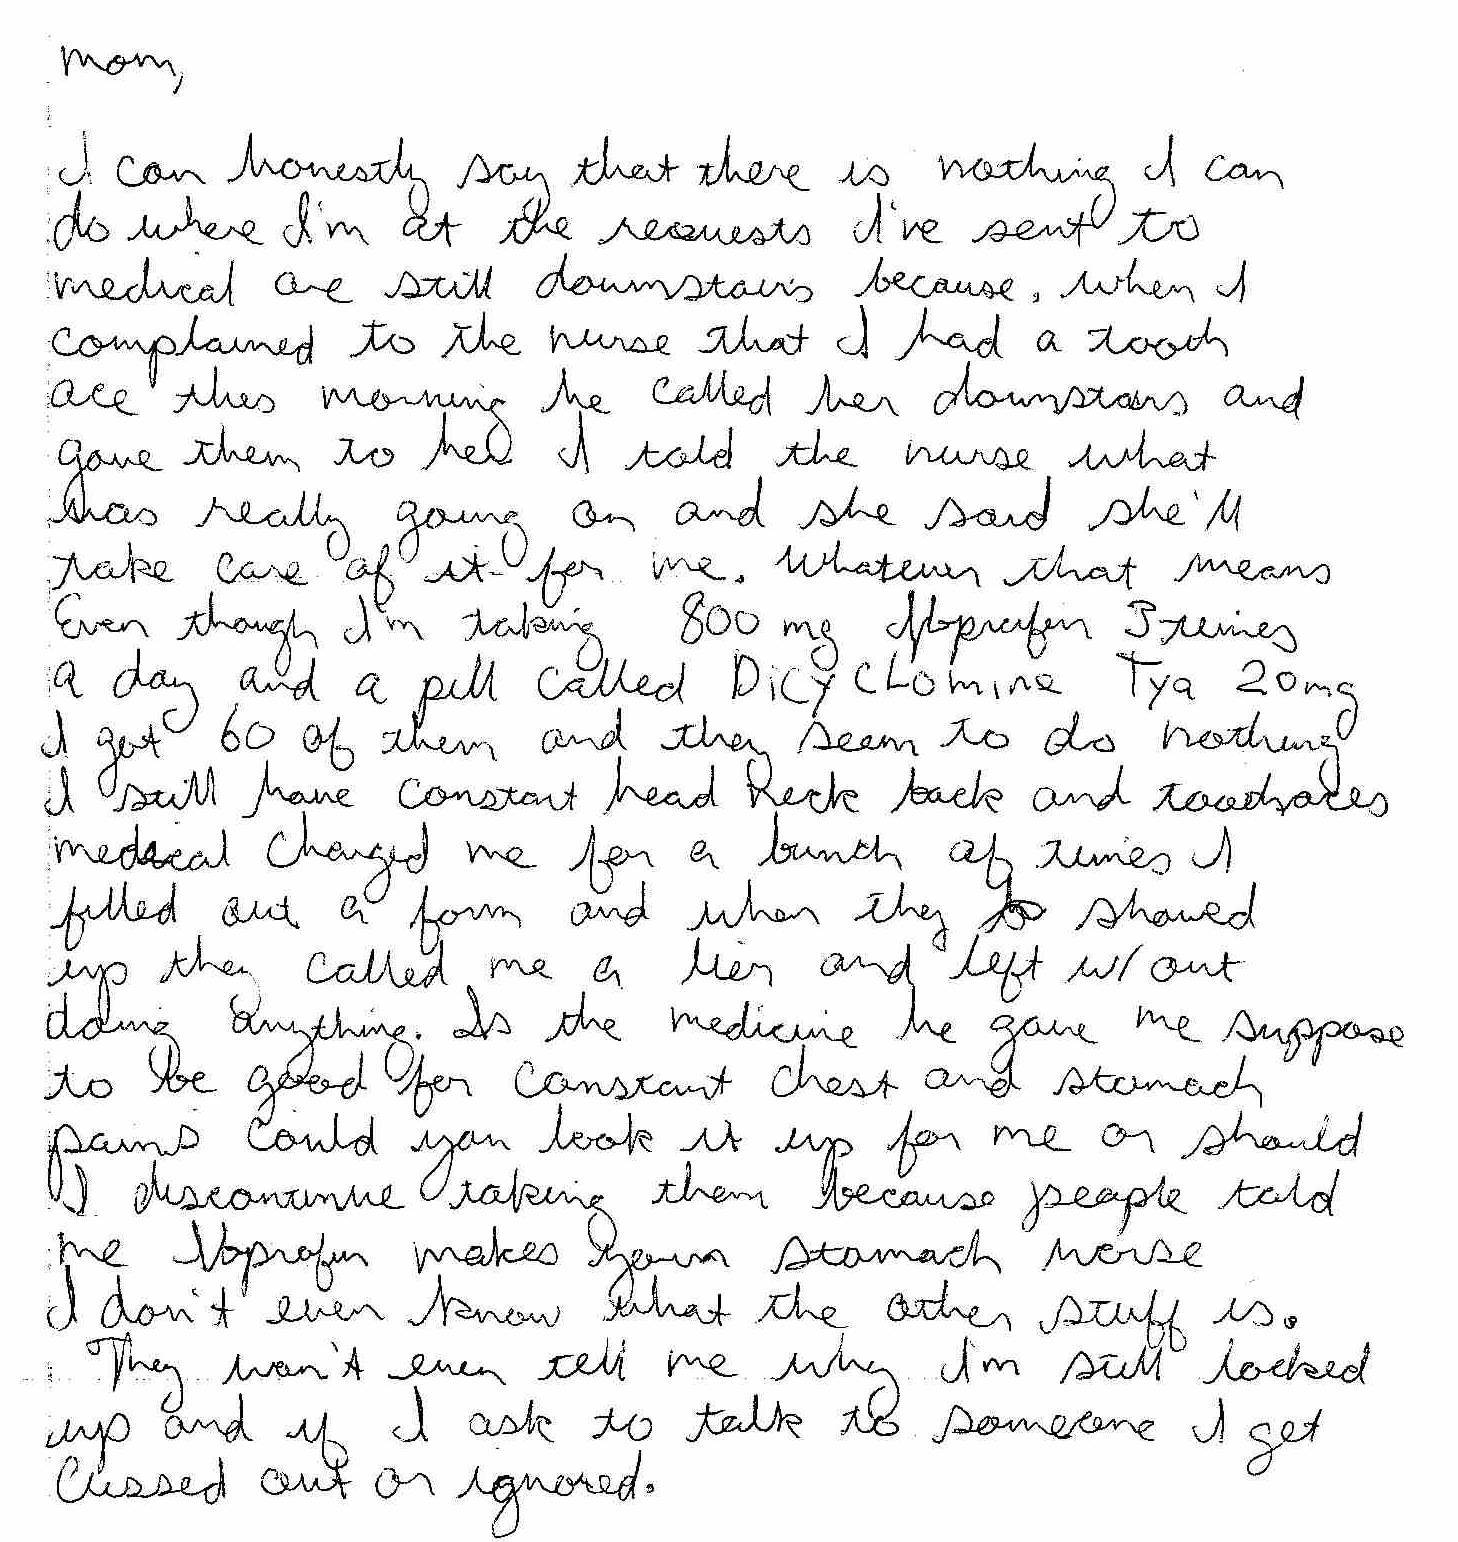 Mom,
I can honestly say that there is nothing I can
do where I'm at the requests I've sent to
medical are still downstairs because, when I
complained to the nurse that I had a tooth
ace this morning he called her downstairs and
gave them to her I told the nurse what
was really going on and she said she'll
take care of it for me. Whatever that means
Even though I'm taking 800 mg Ibprufin 3 times
a day and a pill called DiCYCLOmine Tya 20mg
I got 60 of them and they seem to do nothing
I still have constant head neck back and toothaces
medical charged me for a bunch of times I
filled out a form and when they showed
up they called me a lier and left w/out
doing anything. Is the medicine he gave me suppose
to be good for constant chest and stomach
pains could you look it up for me or should
I discontinue taking them because people told
me Ibprofin makes your stomach worse
I don't even know what the other stuff is.
They won't even tell me why I'm still locked
up and if I ask to talk to someone I get
cussed out or ignored.